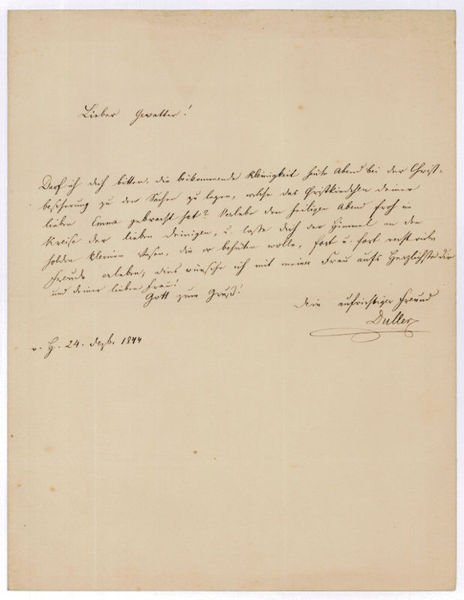 Lieber Gevatter!
Darf ich dich bitten, die beikommende Kleinigkeit heute Abend bei der Christ-
bescherung zu den Sachen zu legen, welche das Christkindchen deiner
lieben Emma gebracht hat? Verlebe den heiligen Abend froh im
Kreise der lieben Deinigen, u. lasse dich der Himmel in den
holden kleinen Wesen, die er behüten wolle, fort u. fort recht viele
Freude erleben, dies wünsche ich mit meiner Frau aufs Herzlichste dir
und deiner lieben Frau!
Gott zum Gruß!
Dein aufrichtiger Freund
Duller
v. H. 24. Dezb. 1844